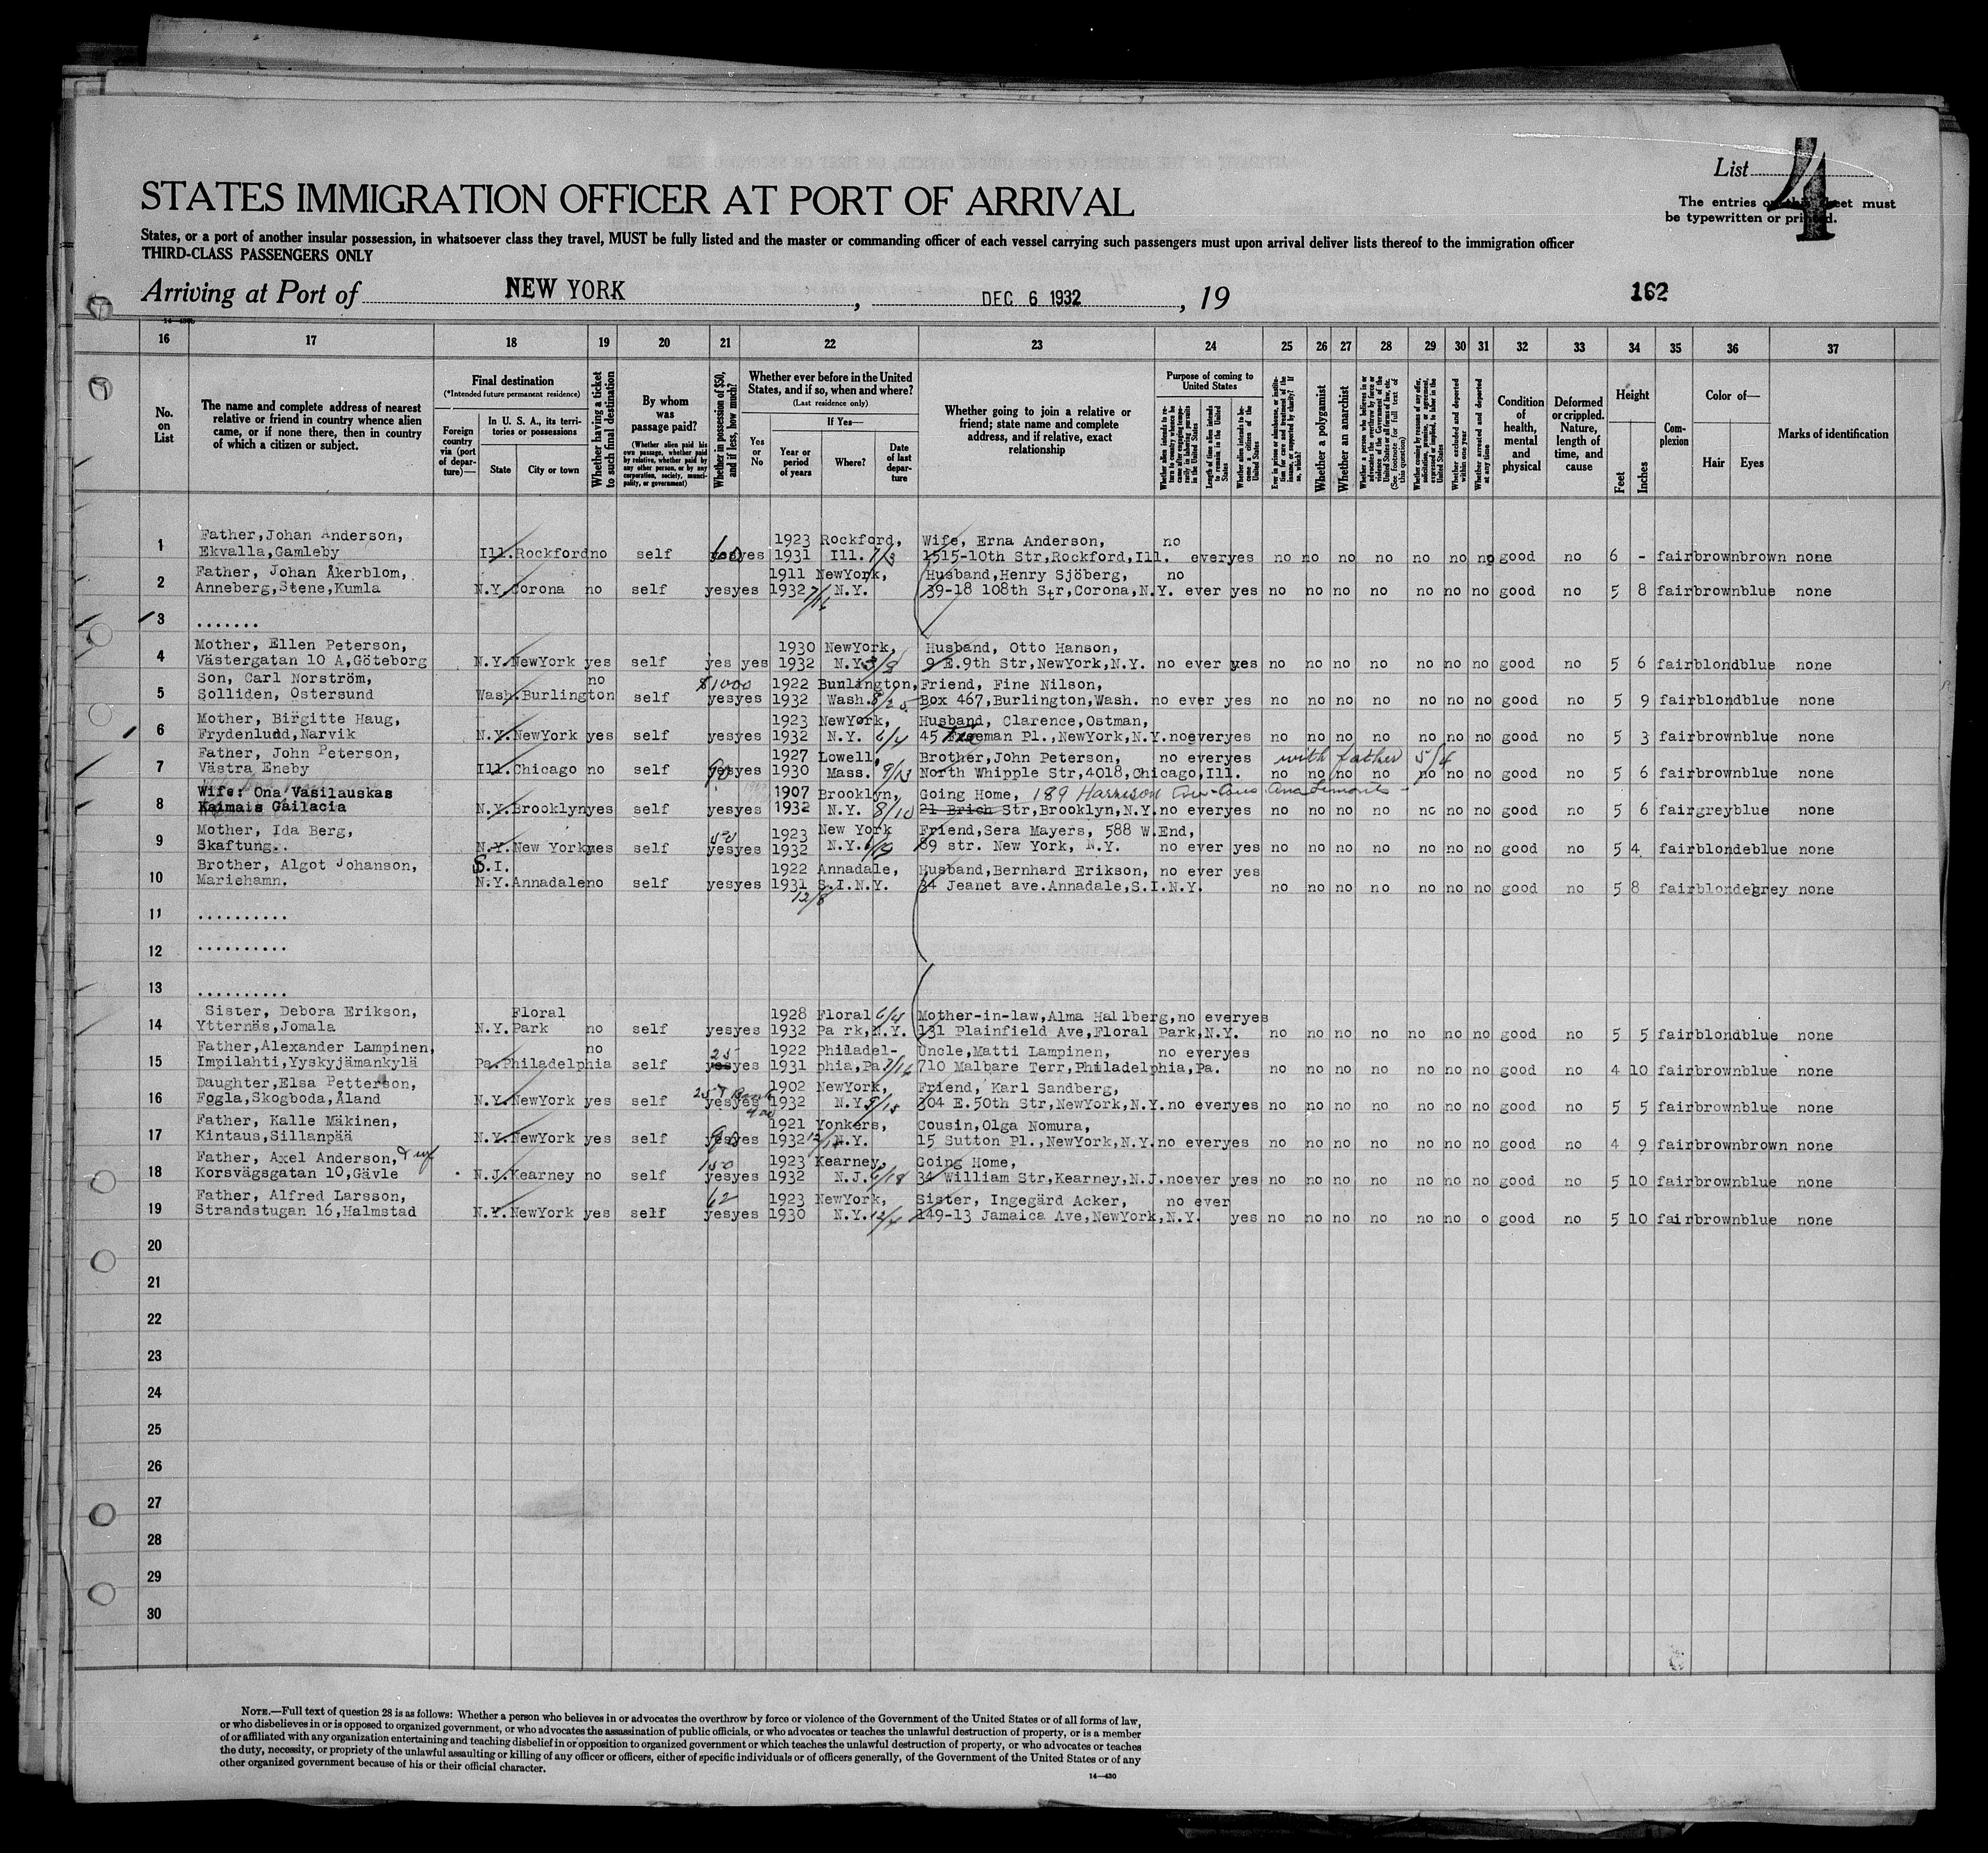 List 4
STATES IMMIGRATION OFFICER AT PORT OF ARRIVAL
The entries on this sheet must
be typewritten or printed.
States, or a port of another insular possession, in whatsoever class they travel, MUST be fully listed and the master or commanding officer of each vessel carrying such passengers must upon arrival deliver lists thereof to the immigration officer
THIRD-CLASS PASSENGERS ONLY
Arriving at Port of NEW YORK, DEC 6 1932, 19
162
16 17 18 19 20 21 22 23 24 25 26 27 28 29 30 31 32 33 34 35 36 37
No. on List
The name and complete address of nearest relative or friend in country whence alien came, or if none there, then in country of which a citizen or subject.
Final destination
(*Intended future permanent residence)
Foreign country via (port of departure)—
In U. S. A., its territories or possessions
State
City or town
Whether having a ticket to such final destination
By whom was passage paid?
(Whether alien paid his own passage, whether paid by relative, whether paid by any other person, or by any corporation, society, municipality, or government)
Whether in possession of $50, and if less, how much?
Whether ever before in the United States, and if so, when and where?
(Last residence only)
Yes or No
If Yes—
Year or period of years
Where?
Date of last departure
Whether going to join a relative or friend; state name and complete address, and if relative, exact relationship
Purpose of coming to United States
Whether alien intends to return to country whence he came after engaging temporarily in laboring pursuits in the United States
Length of time alien intends to remain in the United States
Whether alien intends to become a citizen of the United States
Whether a polygamist
Whether an anarchist
(See footnote for full text of this question)
Whether excluded and deported within one year
Whether arrested and deported at any time
Condition of health, mental and physical
Deformed or crippled. Nature, length of time, and cause
Height
Feet
Inches
Complexion
Color of—
Hair
Eyes
Marks of identification
1 Father,Johan Anderson, 1923 Rockford, Wife, Erna Anderson, no
Ekvalla,Gamleby Ill. Rockford no self yes 1931 Ill. 7/3 1515-10th Str,Rockford,Ill. ever yes no no no no no no no good no 6 - fair brown brown none
2 Father, Johan Åkerblom, 1911 NewYork, Husband,Henry Sjöberg, no
Anneberg,Stene,Kumla N.Y. Corona no self yes yes 1932 7/16 N.Y. 39-18 108th Str,Corona,N.Y. ever yes no no no no no no no good no 5 8 fair brown blue none
3 .......
4 Mother, Ellen Peterson, 1930 NewYork, Husband, Otto Hanson,
Västergatan 10 A,Göteborg N.Y. NewYork yes self yes yes 1932 N.Y. 3/8 9 E.9th Str,NewYork,N.Y. no ever yes no no no no no no no good no 5 6 fair blond blue none
5 Son, Carl Norström, no $1000 1922 Burlington, Friend, Fine Nilson,
Solliden, Ostersund Wash. Burlington self yes yes 1932 Wash. Box 467,Burlington,Wash. no ever yes no no no no no no no good no 5 9 fair blond blue none
6 Mother, Birgitte Haug, 1923 NewYork, Husband, Clarence,Ostman,
Frydenlund,Narvik N.Y. NewYork yes self yes yes 1932 N.Y. 6/4 45 Freeman Pl.,NewYork,N.Y. no ever yes no no no no no no no good no 5 3 fair brown blue none
7 Father, John Peterson, 1927 Lowell, Brother,John Peterson, no ever yes with father 5/4
Västra Eneby Ill. Chicago no self yes 1930 Mass. 9/13 North Whipple Str,4018,Chicago,Ill. no no no no no no no good no 5 6 fair brown blue none
8 Wife: Ona Vasilauskas 1907 Brooklyn, Going Home, 189 Harrison
Kaimais Gailacia N.Y. Brooklyn yes self yes yes 1932 N.Y. 8/10 21 Brich Str,Brooklyn,N.Y. no ever yes no no no no no no no good no 5 6 fair grey blue none
9 Mother, Ida Berg, 50 1923 New York Friend,Sera Mayers, 588 W.End,
Skaftung.. N.Y. New York yes self yes yes 1932 N.Y. 89 str. New York, N.Y. no ever yes no no no no no no no good no 5 4 fair blonde blue none
10 Brother, Algot Johanson, S.I. 1922 Annadale, Husband,Bernhard Erikson, no ever yes
Mariehamn. N.Y. Annadale no self yes yes 1931 S.I.N.Y. 34 Jeanet ave.Annadale,S.I.N.Y. no no no no no no no good no 5 8 fair blonde grey none
12/8
11 ..........
12 ..........
13 ..........
14 Sister, Debora Erikson, Floral 1928 Floral Mother-in-law,Alma Hallberg, no ever yes
Ytternäs,Jomala N.Y. Park no self yes yes 1932 Park,N.Y. 131 Plainfield Ave,Floral Park,N.Y. no no no no no no no good no 5 5 fair blond blue none
15 Father,Alexander Lampinen, no 25 1922 Philadel- Uncle,Matti Lampinen, no ever yes
Impilahti,Yyskyjämankylä Pa. Philadelphia self yes yes 1931 phia,Pa 7/16 710 Malbare Terr,Philadelphia,Pa. no no no no no no no good no 4 10 fair brown blue none
16 Daughter,Elsa Petterson, 1902 NewYork, Friend, Karl Sandberg,
Føgla,Skogboda,Åland N.Y. NewYork yes self yes yes 1932 N.Y. 9/15 304 E.50th Str,NewYork,N.Y. no ever yes no no no no no no no good no 5 5 fair brown blue none
17 Father, Kalle Mäkinen, 1921 Yonkers, Cousin,Olga Nomura,
Kintaus,Sillanpää N.Y. NewYork yes self yes yes 1932 N.Y. 15 Sutton Pl.,NewYork,N.Y. no ever yes no no no no no no no good no 4 9 fair brown brown none
18 Father, Axel Anderson, & wf 150 1923 Kearney, Going Home,
Korsvägsgatan 10,Gävle N.J. Kearney no self yes yes 1932 N.J. 6/18 34 William Str,Kearney,N.J. no ever yes no no no no no no no good no 5 10 fair brown blue none
19 Father, Alfred Larsson, 62 1923 NewYork, Sister, Ingegärd Acker, no ever
Strandstugan 16,Halmstad N.Y. NewYork yes self yes yes 1930 N.Y. 149-13 Jamaica Ave,NewYork,N.Y. yes no no no no no no o good no 5 10 fair brown blue none
20
21
22
23
24
25
26
27
28
29
30
NOTE.—Full text of question 28 is as follows: Whether a person who believes in or advocates the overthrow by force or violence of the Government of the United States or of all forms of law,
or who disbelieves in or is opposed to organized government, or who advocates the assassination of public officials, or who advocates or teaches the unlawful destruction of property, or is a member
of or affiliated with any organization entertaining and teaching disbelief in or opposition to organized government or which teaches the unlawful destruction of property, or who advocates or teaches
the duty, necessity, or propriety of the unlawful assaulting or killing of any officer or officers, either of specific individuals or of officers generally, of the Government of the United States or of any
other organized government because of his or their official character.
14—430